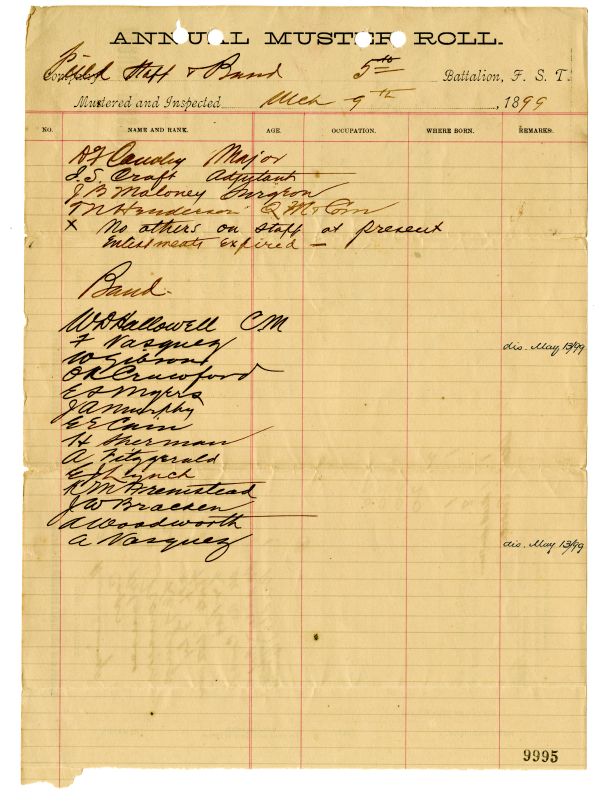 ANNUAL MUSTER ROLL.
Field Staff & Band 5th Battalion, F. S. T.
Mustered and Inspected Mch 9th, 1899
NO. NAME AND RANK. AGE. OCCUPATION. WHERE BORN. REMARKS.
Major
J.S. Craft Adjutant
J B Maloney Surgeon
T N Henderson Q M & Com
x No others on staff at present
Enlistments expired —
Band -
W D Hallowell C M
F Vasquez dis. May 13/99
W Gibson
O K Crawford
E S Myers
J A Murphy
E E Cain
H Sherman
A Fitzgerald
E J Lynch
R M Bremstead
J W Bracken
A Woodworth
A Vasquez dis. May 13/99
9995